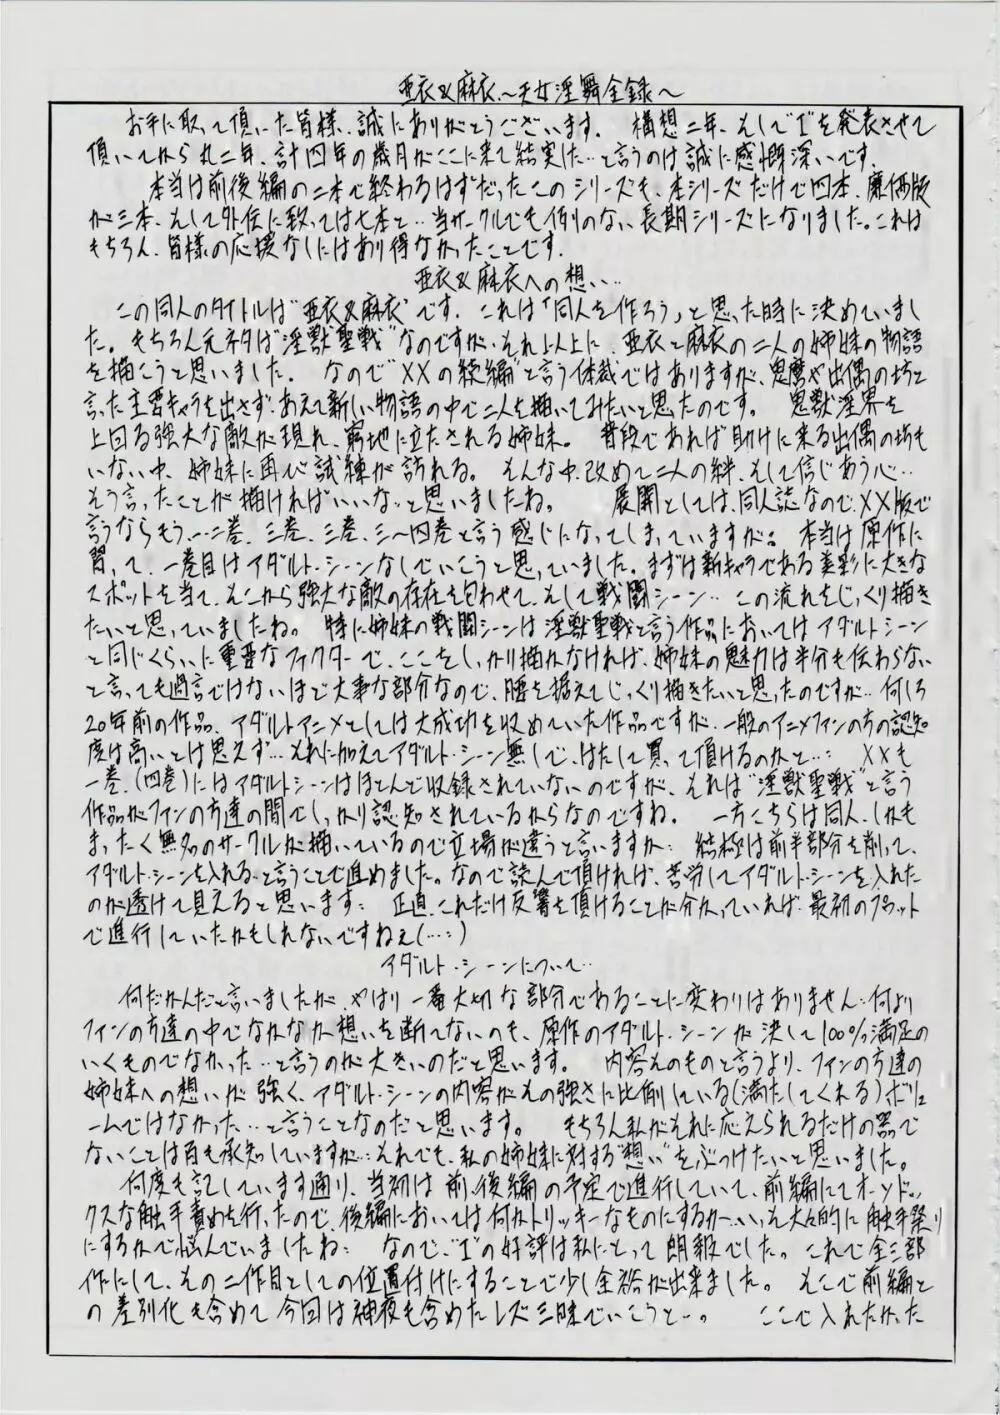 亜衣&麻衣 〜天女淫舞全録〜
お手に取って頂いた皆様、誠にありがとうございます。 構想二年、そして"Ⅰ"を発表させて
頂いてから丸二年、計四年の歳月がここに来て結実した…と言うのは誠に感慨深いです。
本当は前後編の二本で終わるはずだったこのシリーズも、本シリーズだけで四本、廉価版
が三本、そして外伝に致っては七本と…当サークルでも例のない長期シリーズになりました。これは
もちろん、皆様の応援なしにはあり得なかったことです。
亜衣&麻衣への想い…
この同人のタイトルは"亜衣&麻衣"です。これは「同人を作ろう」と思った時に決めていまし
た。もちろん元ネタは"淫獣聖戦"なのですが、それ以上に、亜衣と麻衣の二人の姉妹の物語
を描こうと思いました。 なので"XXの続編"と言う体裁ではありますが、鬼麿や出偶の坊と
言った主要キャラを出さず、あえて新しい物語の中で二人を描いてみたいと思ったのです。 鬼獣淫界を
上回る強大な敵が現れ、窮地に立たされる姉妹。 普段であれば助けに来る出偶の坊も
いない中、姉妹に再び試練が訪れる。 そんな中、改めて二人の絆、そして信じあう心…
そう言ったことが描ければいいな…と思いましたね。 展開としては、同人誌なので、XX版で
言うならもう…二巻、三巻、三巻、三〜四巻と言う感じになってしまっていますが。 本当は原作に
習って、一巻目はアダルト・シーンなしでいこうと思っていました。まずは新キャラである美彩に大きな
スポットを当て、そこから強大な敵の存在を匂わせて、そして戦闘シーン…この流れをじっくり描き
たいと思っていましたね。 特に姉妹の戦闘シーンは淫獣聖戦と言う作品においてはアダルトシーン
と同じくらいに重要なファクターで、ここをしっかり描かなければ、姉妹の魅力は半分も伝わらない
と言っても過言ではないほど大事な部分なので、腰を据えてじっくり描きたいと思ったのですが…何しろ
20年前の作品、アダルトアニメとしては大成功を収めていた作品ですが、一般のアニメファンの方の認知
度は高いとは思えず…それに加えてアダルト・シーン無しで、はたして買って頂けるのかと…: XXも
一巻、(四巻)にはアダルトシーンはほとんど収録されていないのですが、それは"淫獣聖戦"と言う
作品がファンの方達の間でしっかり認知されているからなのですね。 一方こちらは同人、しかも
まったく無名のサークルが描いているので立場が違うと言いますか… 結極は前半部分を削って、
アダルト・シーンを入れる…と言うことで進めました。なので読んで頂ければ、苦労してアダルト・シーンを入れた
のが透けて見えると思います: 正直、これだけ反響を頂けることが分かっていれば、最初のプロット
で進行していたかもしれないですねぇ(…:)
アダルト・シーンについて…
何だかんだと言いましたが、やはり一番大切な部分であることに変わりはありません…何より
ファンの方達の中でなかなか想いを断てないのも、原作のアダルト・シーンが決して100%満足の
いくものでなかった…と言うのが大きいのだと思います。 内容そのものと言うより、ファンの方達の
姉妹への想いが強く、アダルト・シーンの内容がその強さに比例している(満たしてくれる)ボリュ
ームではなかった…と言うことなのだと思います。 もちろん私がそれに応えられるだけの器で
ないことは百も承知していますが…それでも、私の姉妹に対する"想い"をぶつけたいと思いました。
何度も記しています通り、当初は前、後編の予定で進行していて、前編にてオーソドッ
クスな触手責めを行ったので、後編においては何かトリッキーなものにするか…いっそ大々的に触手祭り
にするかで悩んでいましたね: なので、"Ⅰ"の好評は私にとって朗報でした。これで全三部
作にして、その二作目としての位置付けにすることで少し余裕が出来ました。 そこで前編と
の差別化も含めて今回は神夜も含めたレズ三昧でいこうと…。 ここで入れたかった